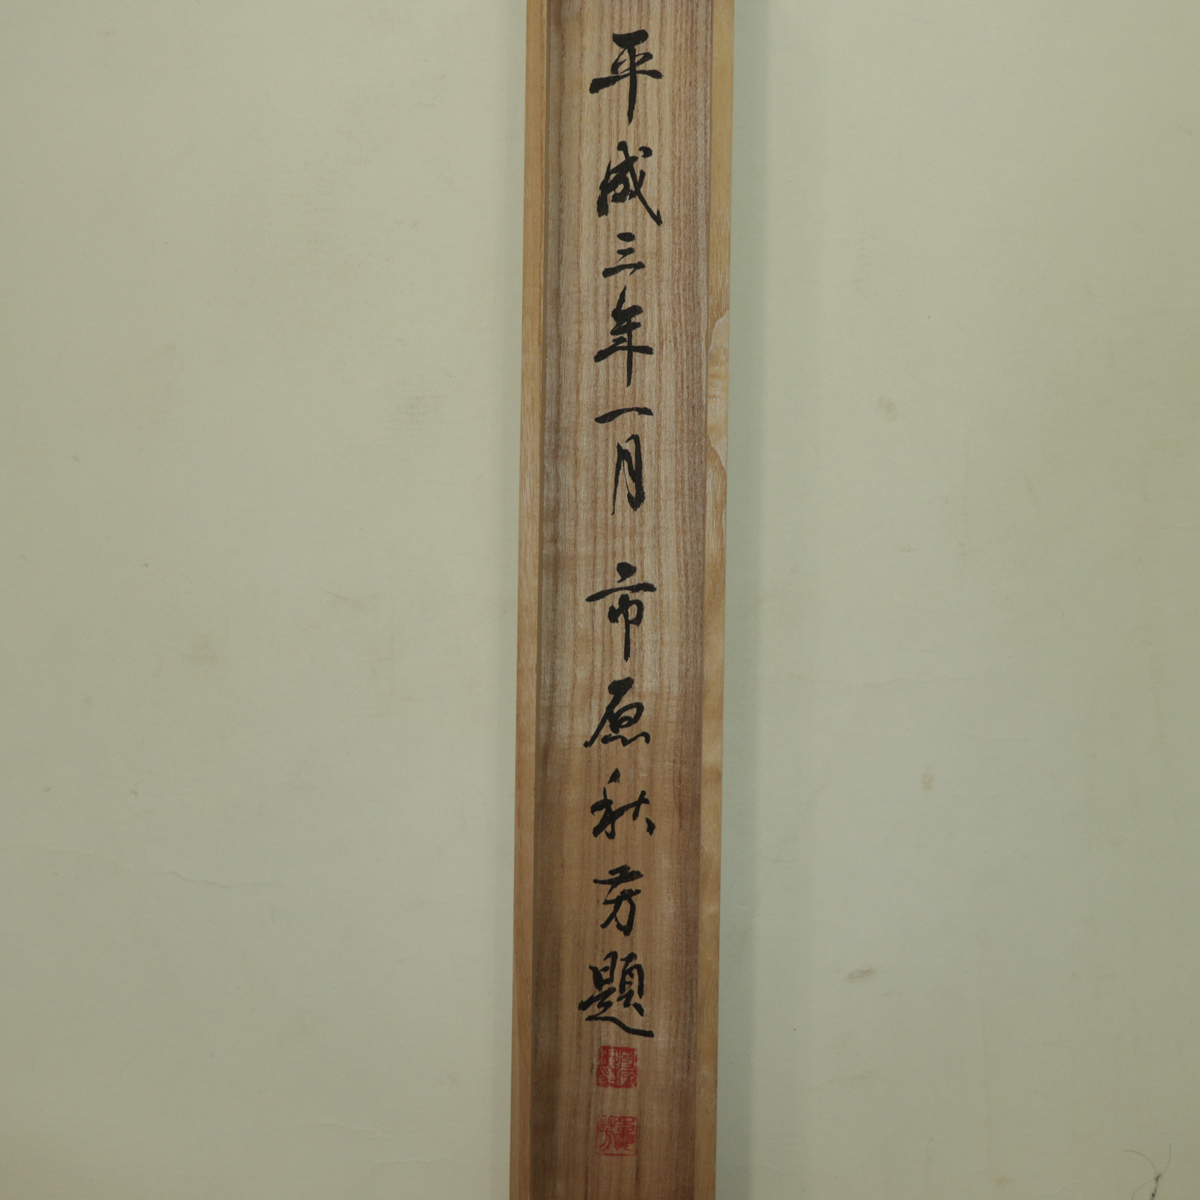 平成三年一月 市原秋芳題